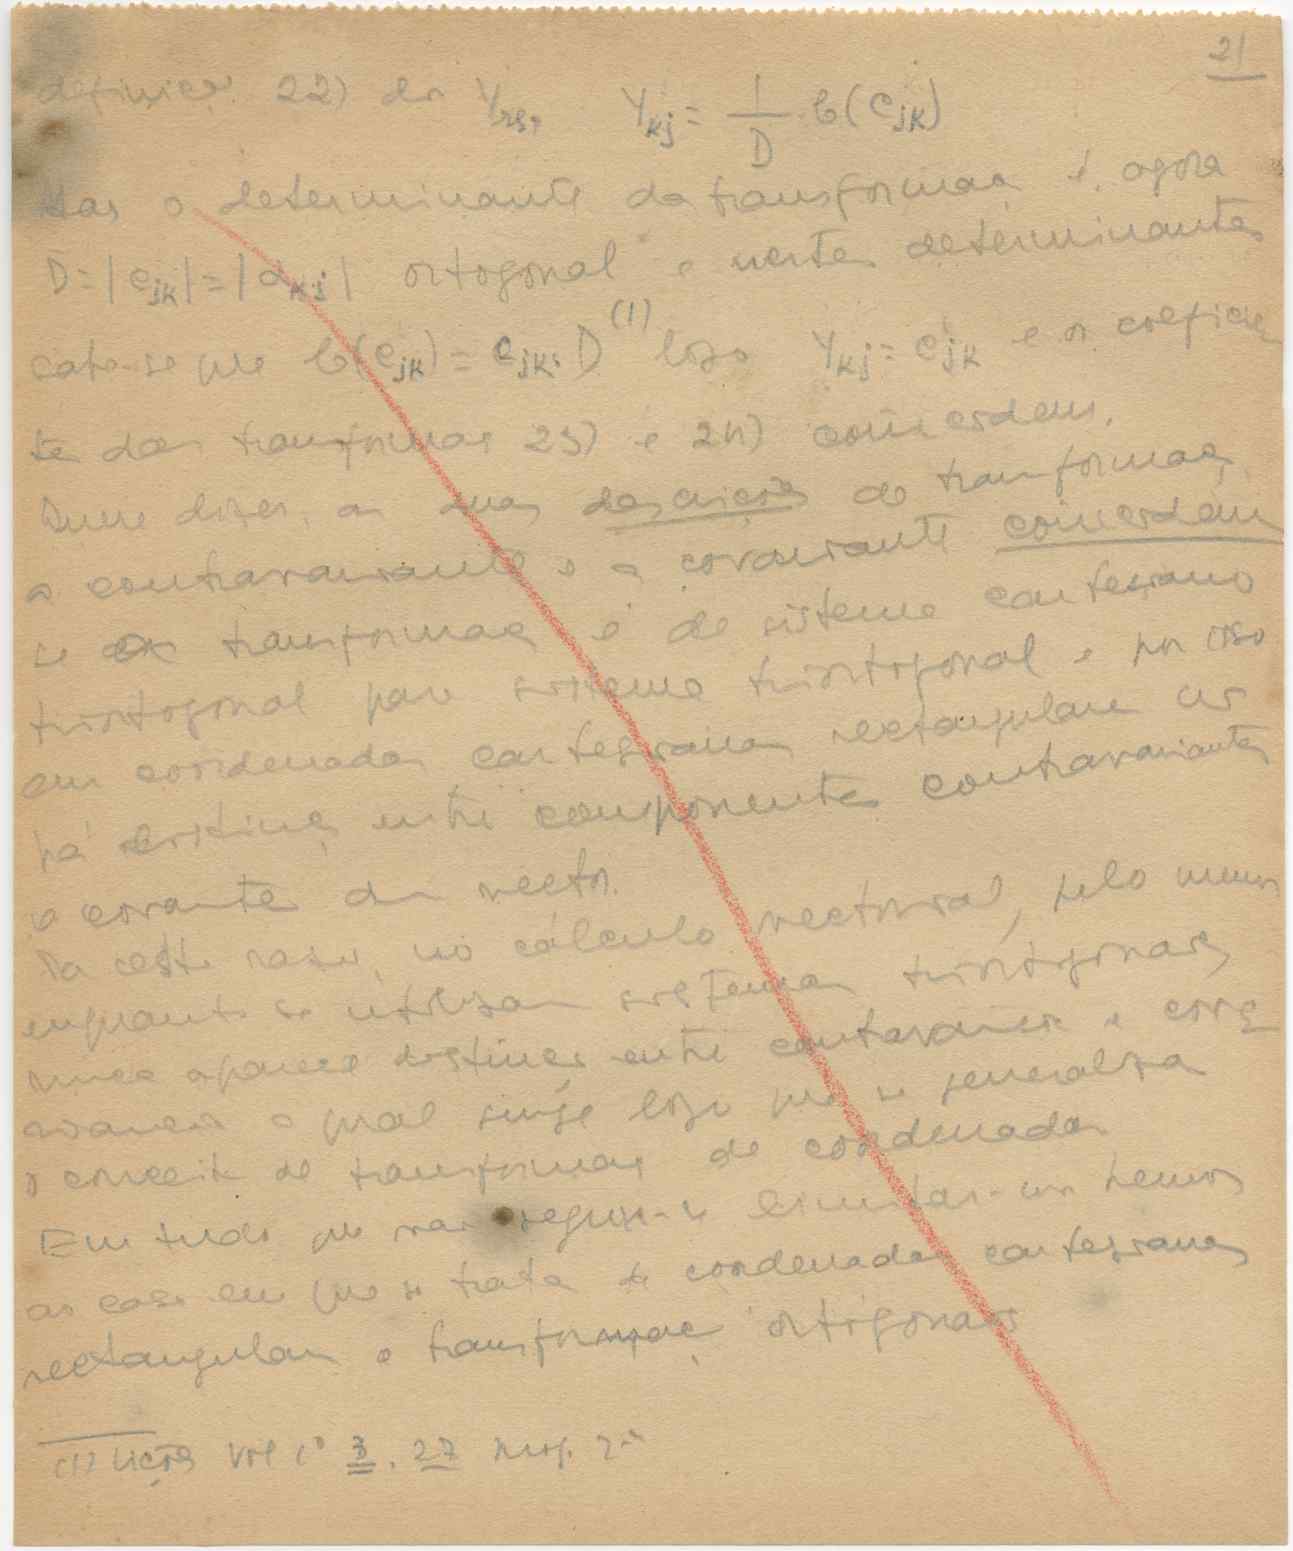 21
definição 22) de γrs, γkj = 1/D · C(cjk)
Mas o determinante da transformação é, agora
D = |cjk| = |αkj| ortogonal e nestes determinantes
sabe-se que C(cjk) = cjk · D (1) logo γkj = cjk e os coeficien
tes das transformações 23) e 24) coincidem.
Quere dizer, as duas de transformação,
a contravariante e a covariante coincidem
se a transformação é de sistema cartesiano
triortogonal para sistema triortogonal e por isso
em coordenadas cartesianas rectangulares não
há distinção entre componentes contravariantes
e covariantes dum vector.
Por esta razão, no cálculo vectorial, pelo menos
enquanto se utilizam sistemas triortogonais
nunca aparece distinção entre contravariância e cova
riância a qual surge logo que se generaliza
o conceito de transformação de coordenadas
Em tudo que vai seguir-se limitar-nos hemos
ao caso em que se trata de coordenadas cartesianas
rectangulares e transformações ortogonais
(1) Lições Vol 1º 3, 27 prop. 2ª